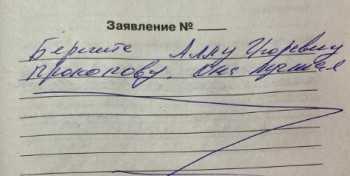 Заявление №
Берегите Аллу Игоревну
Прокопову. Она лучшая